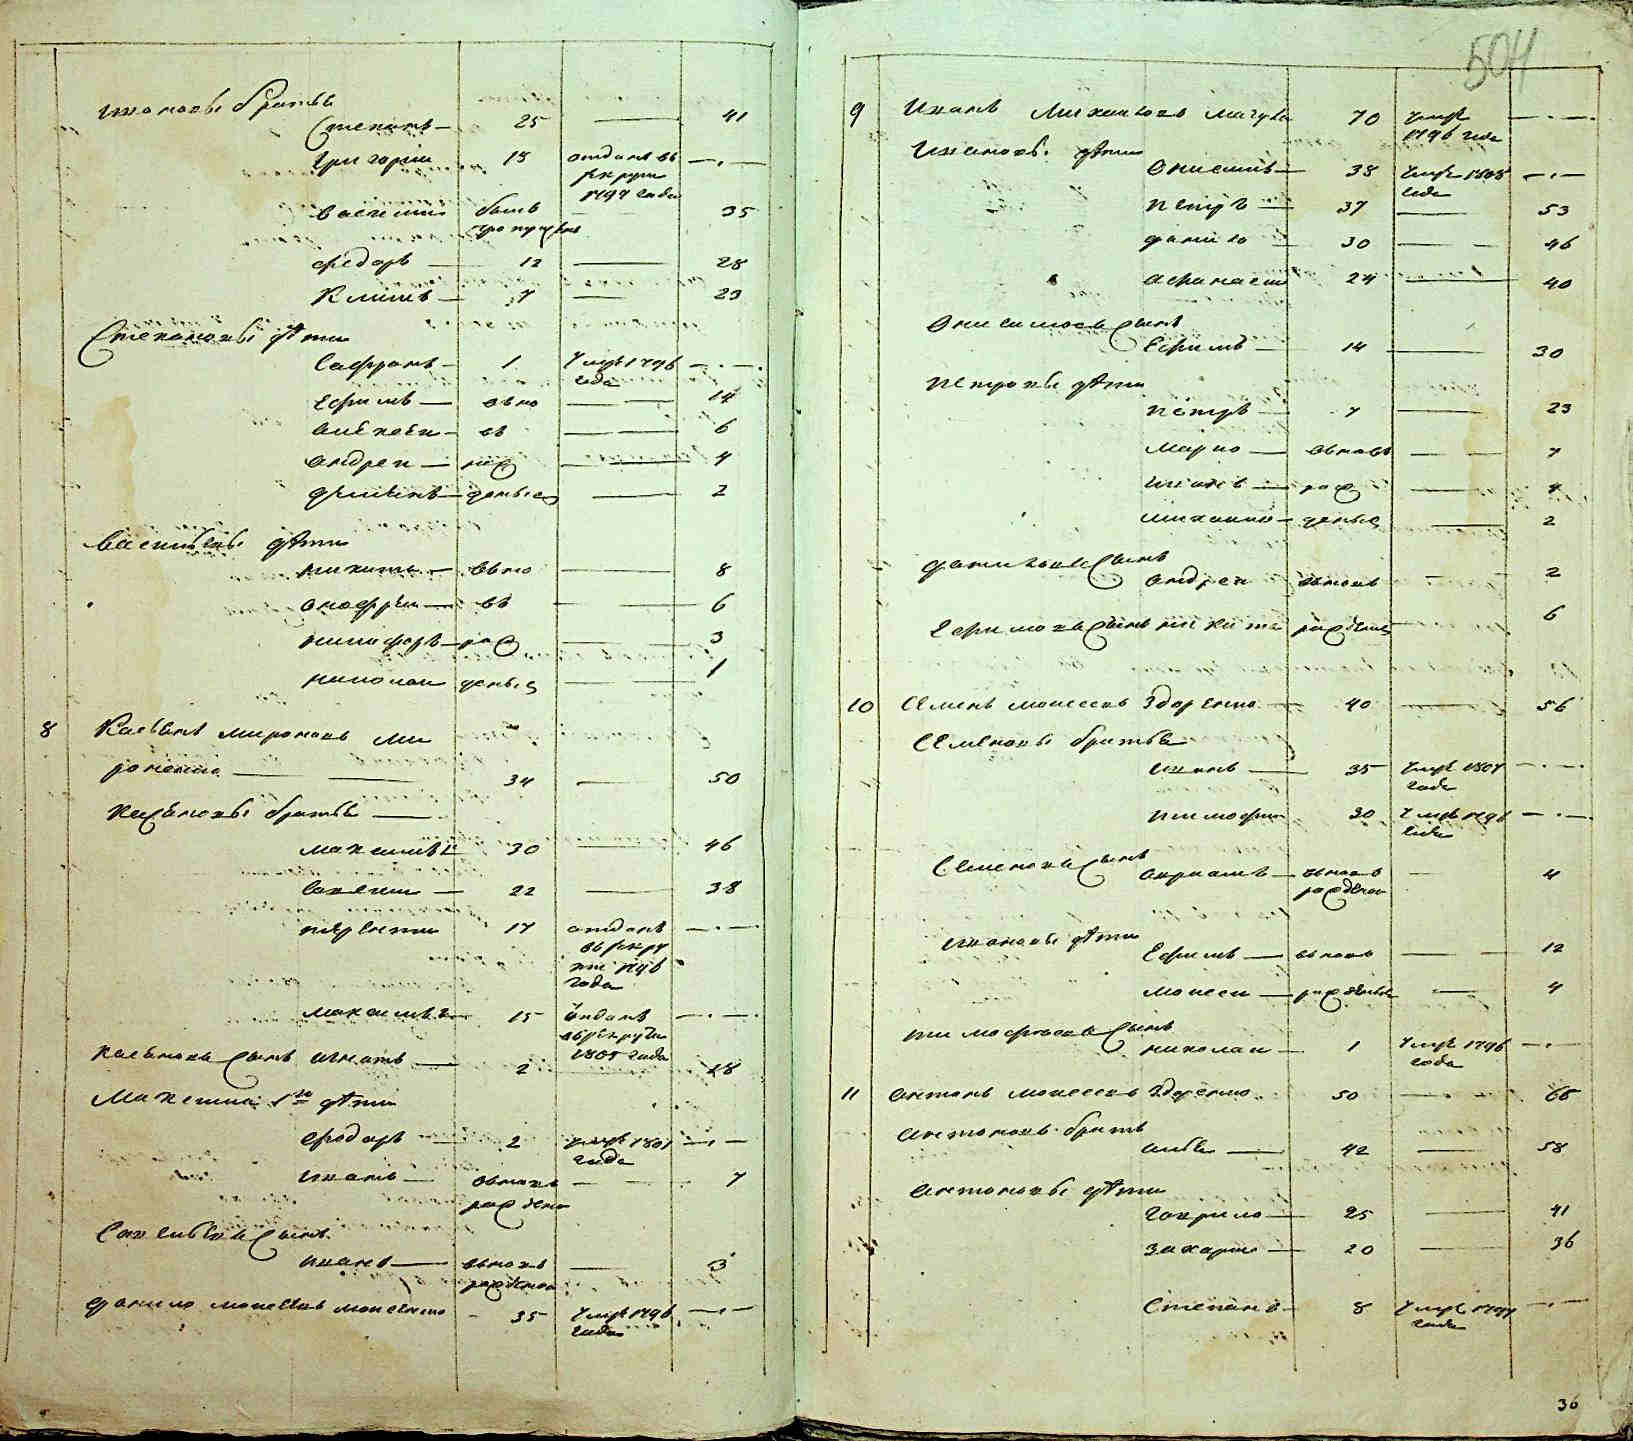 Ивановы братья
Степанъ — 25 — 41
Григорий 18 отданъ въ — . —
рекруты
1797 года
Василий бывъ 35
пропущенъ
Федоръ — 12 — 28
Климъ — 7 — 23
Степановы дѣти
Сафронъ — 1 умре 1796 — . —
года
Ефимъ — вно — 14
Алексѣй — въ — 6
Андрей — рож — 4
денные — 2
Васильевы дѣти
Никита — вно — 8
Онофрей — въ — 6
Никифоръ — рож — 3
Николай денные — 1
8 Касьянъ Мироновъ Ми
роненко — 34 — 50
Касьяновы братья —
Максимъ 1й 30 — 46
Савелий — 22 — 38
Терентий 17 отданъ — . —
въ рекру
ты 1796
года
Максимъ 2й 15 отданъ — . —
въ рекруты
1805 года
Касьяновъ сынъ Игнатъ — 2 18
Максима 1го дѣти
Федоръ — 2 умре 1801 — . —
года
Иванъ — вновь — 7
рожденъ
Савельевъ сынъ
Иванъ — вновь — 3
рожденой
Данило Моисеевъ Моисеенко — 35 умре 1796 — . —
года
504
9 Иванъ Михайловъ 70 умре — . —
1796 года
Ивановы дѣти
Онисимъ — 38 умре 1808 — . —
года
Петръ — 37 — 53
Данило — 30 — 46
Афанасий 24 — 40
Онисимовъ сынъ
Ефимъ — 14 — 30
Петровы дѣти
Петръ — 7 — 23
Марко — вновь — 7
рож — 4
Михайло — денные — 2
Даниловъ сынъ
Андрей вновь — 2
Ефимовъ сынъ Никита рожденные 6
10 Семенъ Моисеевъ Здоренко — 40 — 56
Семеновы братья
Иванъ — 35 умре 1807 — . —
года
Тимофей 30 умре 1796 — . —
года
Семеновъ сынъ
вновь — 4
рожденой
Ивановы дѣти
Ефимъ — вновь — 12
Моисей — рожденные — 4
Тимофеевъ сынъ
Николай — 1 умре 1796 — . —
года
11 Антонъ Моисеевъ Здоренко 50 — 66
Антоновъ братъ
Илья — 42 — 58
Антоновы дѣти
Гаврило — 25 — 41
Захарий — 20 — 36
Степанъ — 8 умре 1797 — . —
года
36